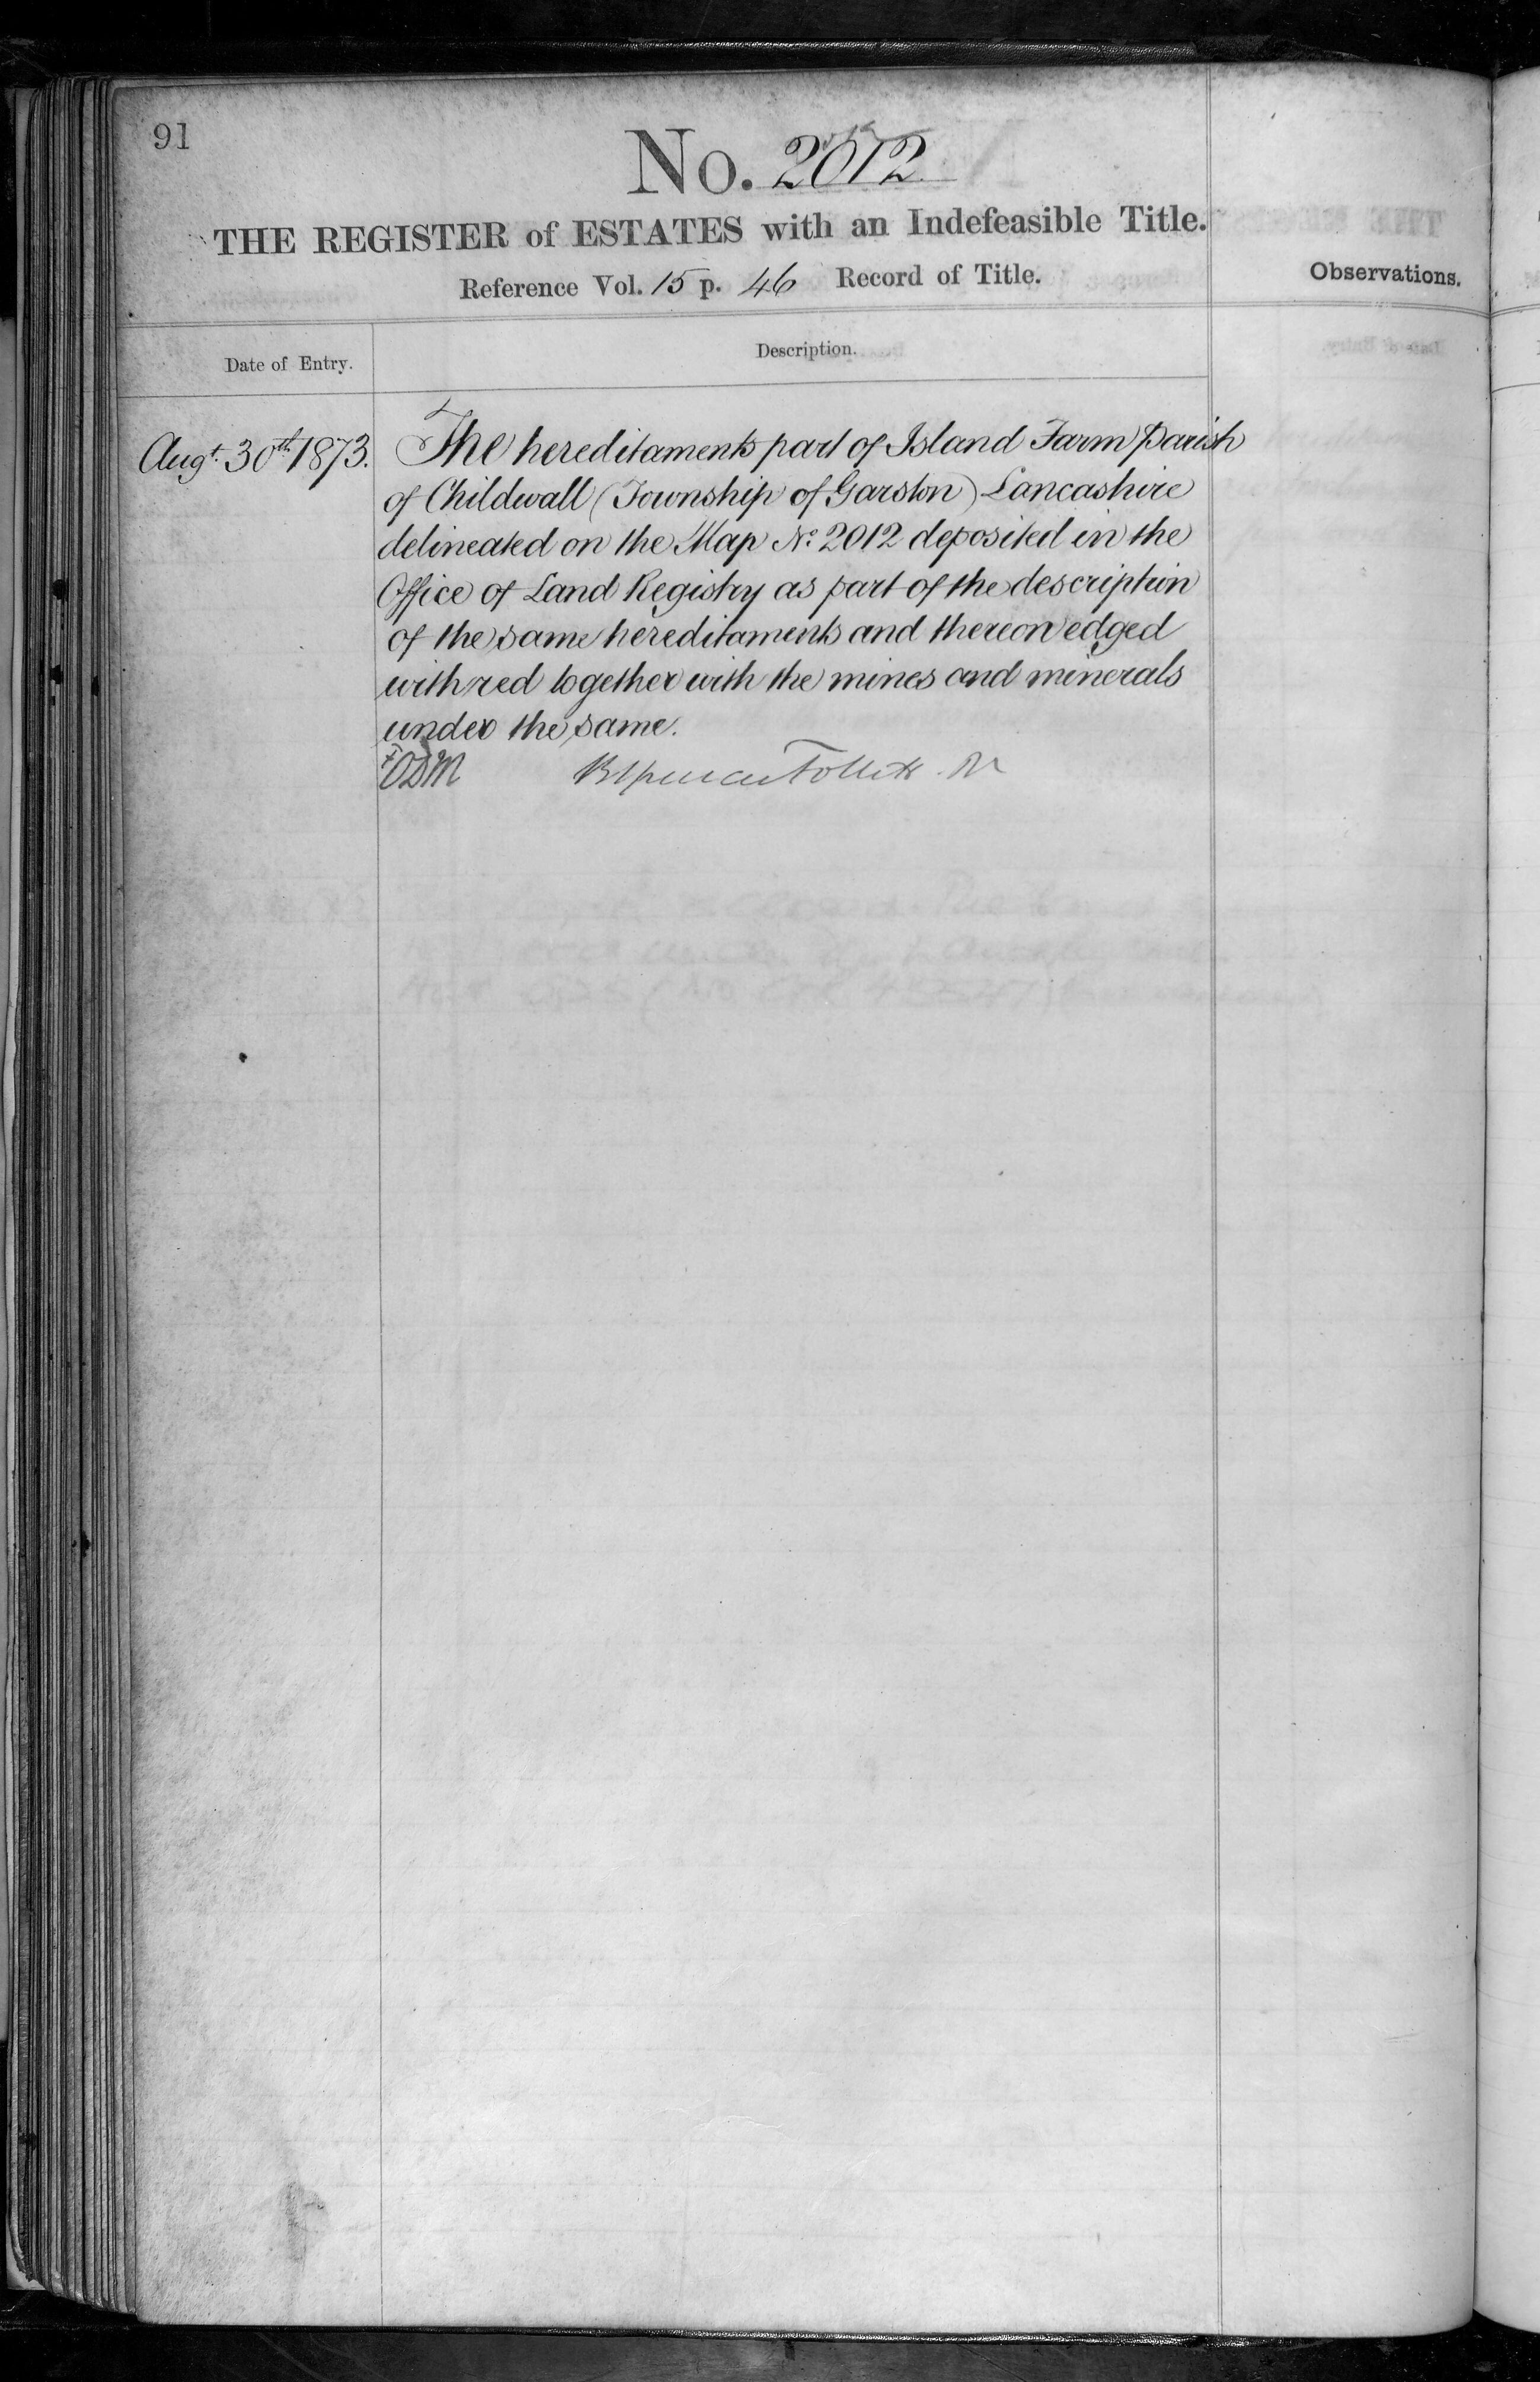 91
No. 2012
THE REGISTER of ESTATES with an Indefeasible Title.
Reference Vol. 15 p. 46 Record of Title.
Observations.
Date of Entry.
Description.
Augt. 30th 1873.
The hereditaments part of Island Farm Parish
of Childwall (Township of Garston) Lancashire
delineated on the Map No. 2012 deposited in the
Office of Land Registry as part of the description
of the same hereditaments and thereon edged
with red together with the mines and minerals
under the same.
Follett